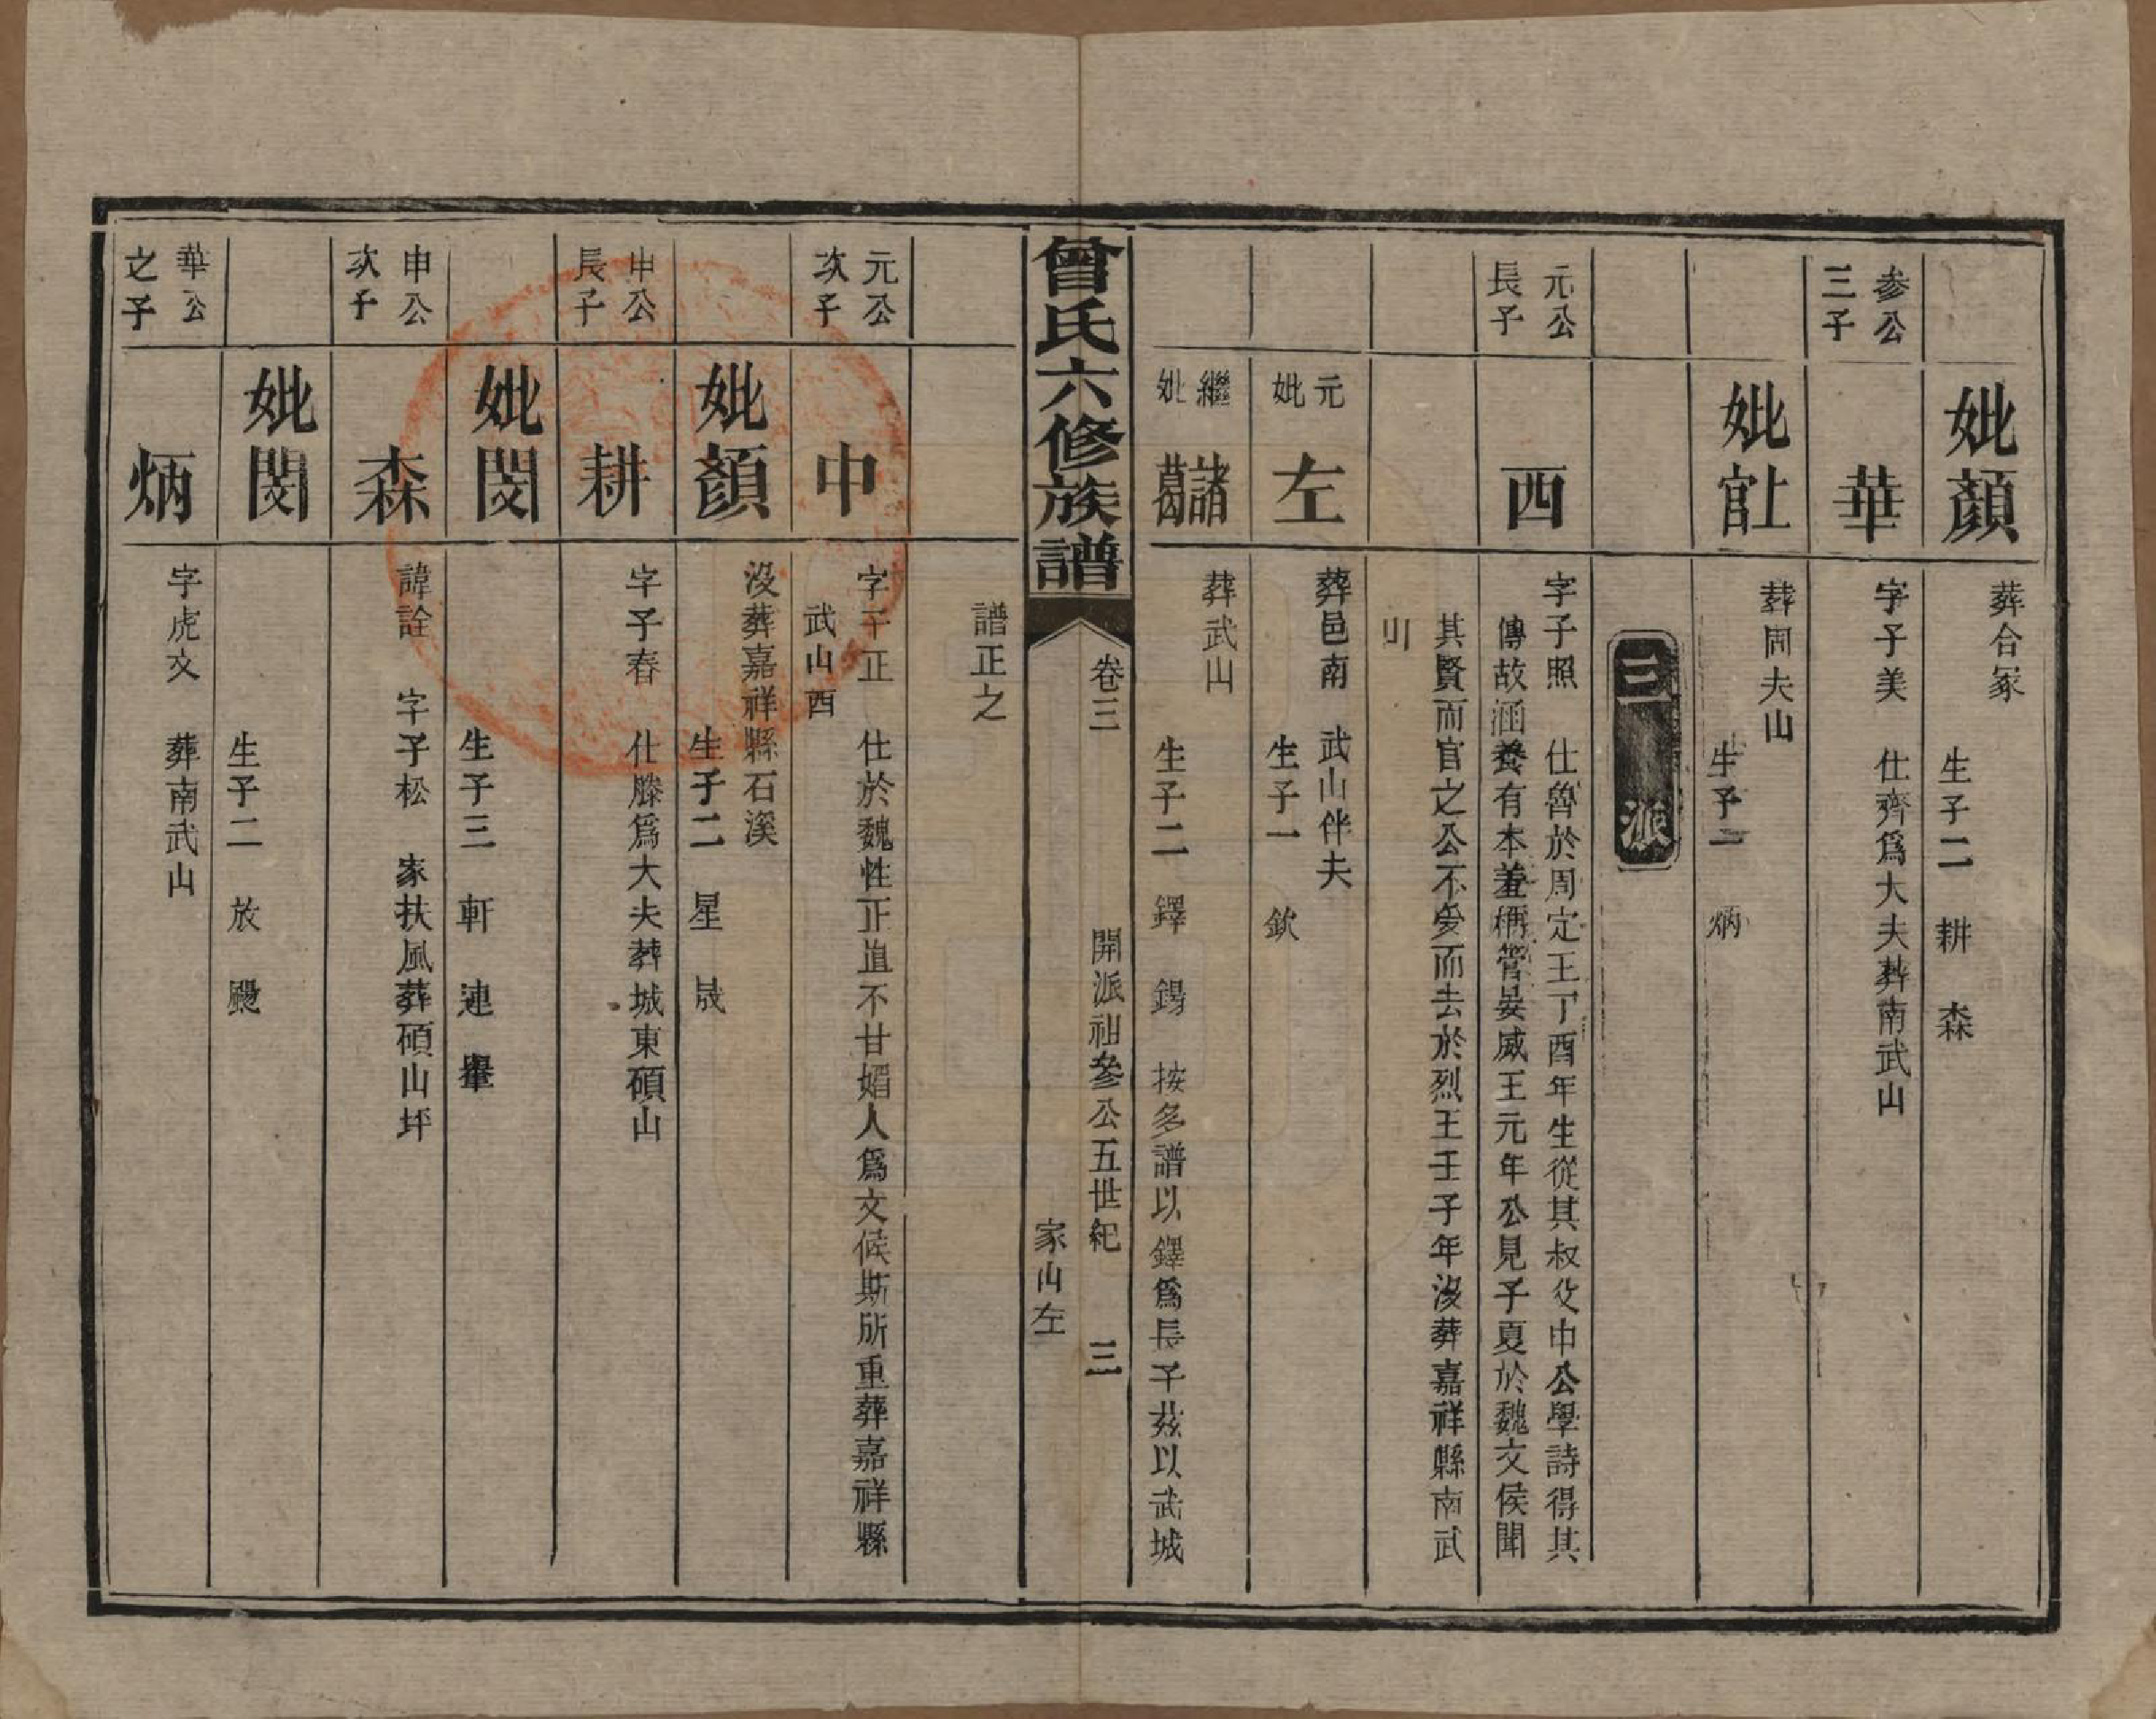 妣顏
葬合冢
生子二　耕　森
參公
三子
華
字子美　仕齊爲大夫葬南武山
妣上官
葬周夫山
生子一　炳
三派
元公
長子
西
字子照　仕魯於周定王丁酉年生從其叔父申公學詩得其
傳故涵養有本羞稱管晏威王元年公見子夏於魏文侯聞
其賢而官之公不受而去於烈王壬子年沒葬嘉祥縣南武
山
元妣
左
葬邑南　武山伴夫
生子一　欽
繼妣
諸葛
葬武山
生子二　鐸　錫　按多譜以鐸爲長子茲以武城
曾氏六修族譜
卷三　開派祖參公五世紀　三
家山左
譜正之
元公
次子
中
字子正　仕於魏性正直不甘媚人爲文侯斯所重葬嘉祥縣
武山西
妣顏
沒葬嘉祥縣石溪
生子二　星　晟
申公
長子
耕
字子春　仕滕爲大夫葬城東碩山
妣閔
生子三　軒　連　轝
申公
次子
森
諱詮　字子松　家扶風葬碩山坪
妣閔
生子二　放　颺
華公
之子
炳
字虎文　葬南武山